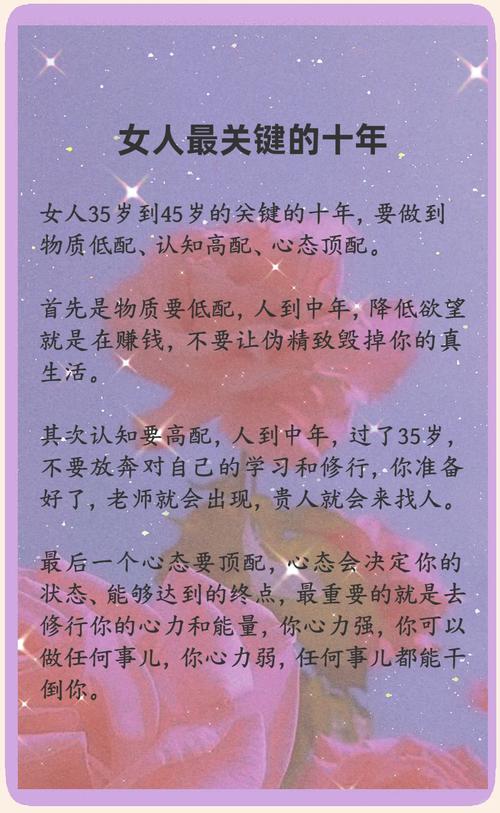 女人最关键的十年
女人35岁到45岁的关键的十年，要做到
物质低配、认知高配、心态顶配。
首先是物质要低配，人到中年，降低欲望
就是在赚钱，不要让伪精致毁掉你的真
生活。
其次认知要高配，人到中年，过了35岁，
不要放奔对自己的学习和修行，你准备
好了，老师就会出现，贵人就会来找人。
最后一个心态要顶配，心态会决定你的
状态、能够达到的终点，最重要的就是去
修行你的心力和能量，你心力强，你可以
做任何事儿，你心力弱，任何事儿都能干
倒你。